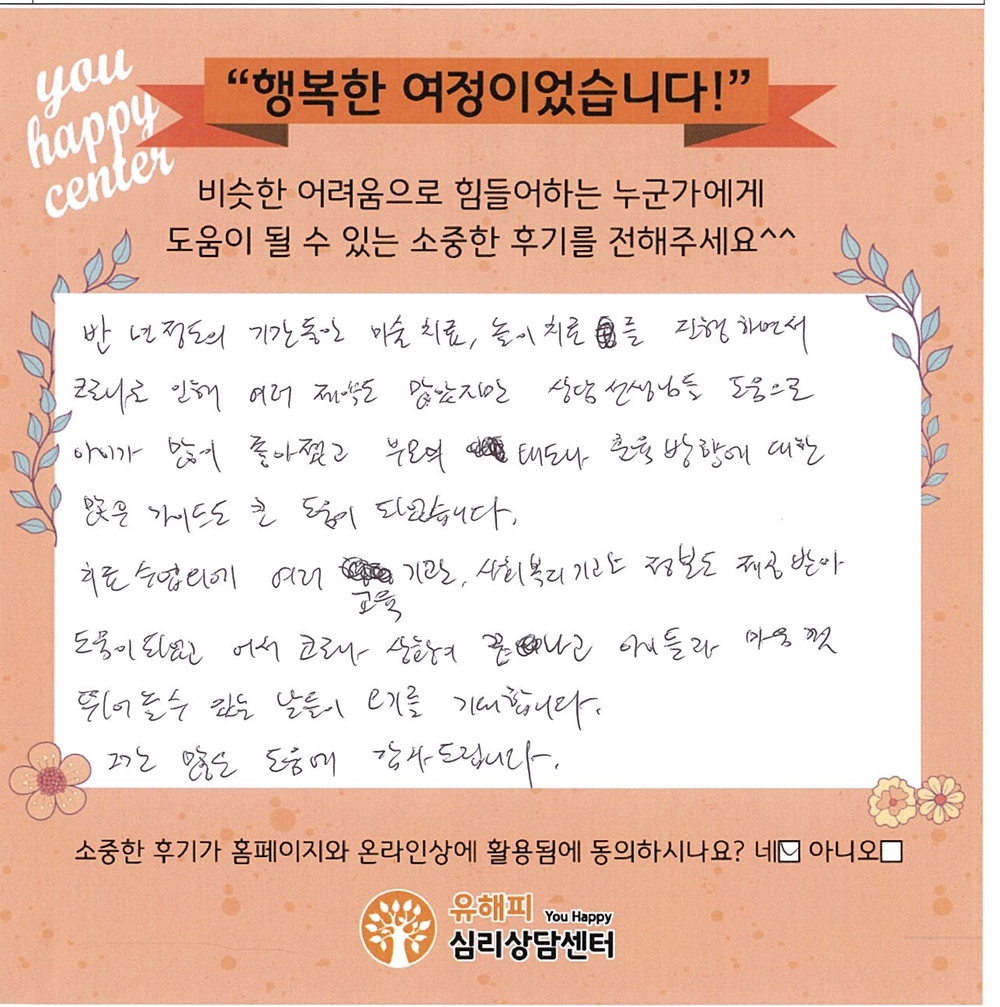 you
happy
center
“행복한 여정이었습니다!”
비슷한 어려움으로 힘들어하는 누군가에게
도움이 될 수 있는 소중한 후기를 전해주세요^^
반 년 정도의 기간동안 미술치료, 놀이치료를 진행하면서
코로나로 인해 여러 제약도 많았지만 상담 선생님들 도움으로
아이가 많이 좋아졌고 부모의 태도나 훈육 방향에 대한
많은 가이드도 큰 도움이 되었습니다.
치료 수업외에 여러 교육 기관, 사회복지기관 정보도 제공 받아
도움이 되었고 어서 코로나 상황이 끝나고 아이들과 마음 껏
뛰어 놀 수 있는 날들이 오기를 기대합니다.
많은 도움에 감사드립니다.
소중한 후기가 홈페이지와 온라인상에 활용됨에 동의하시나요? 네 아니오
유해피 You Happy
심리상담센터